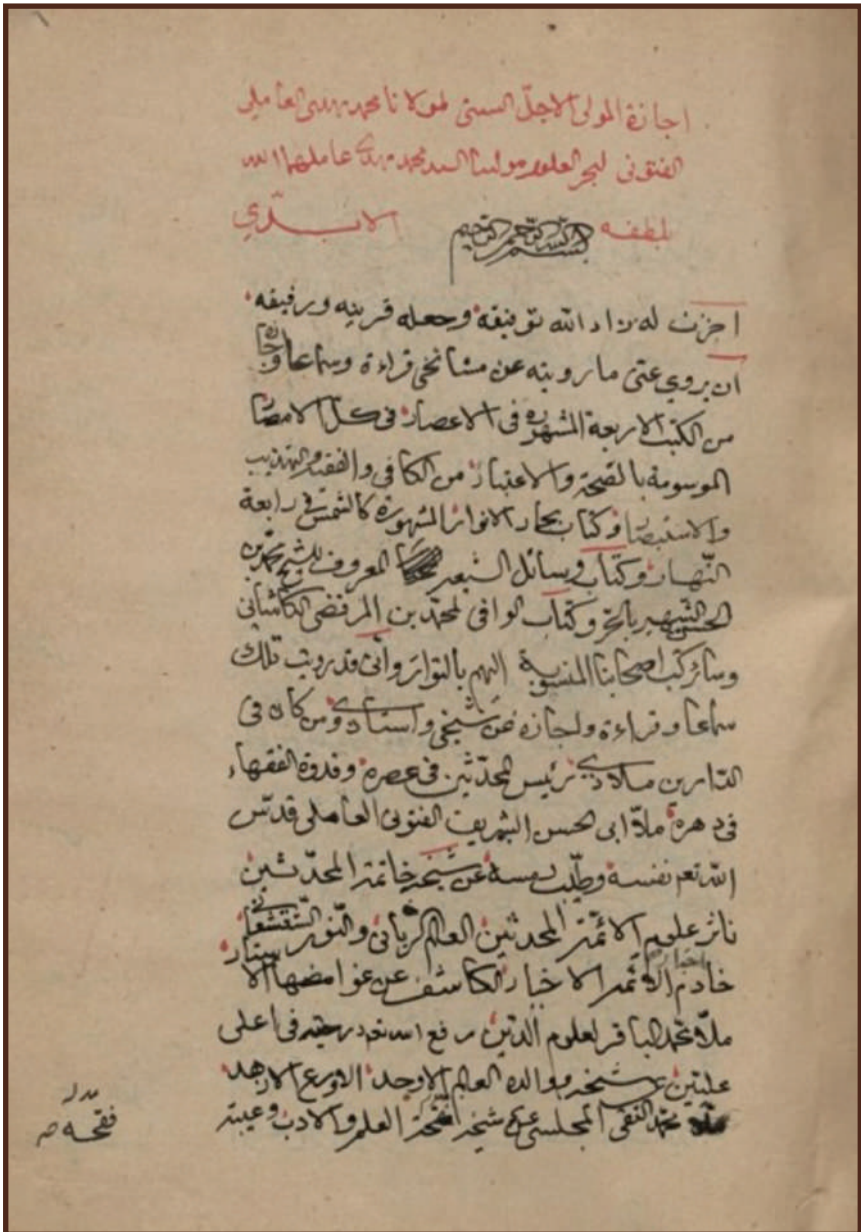 اجازة المولى الاجل السنى لمولانا محمد مهدى العاملى
الفتونى لبحر العلوم مولينا السيد محمد مهدى عاملهما الله
بلطفه الابدي
بسم الله الرحمن الرحيم
اجزت له زاد الله توفيقه وجعله قرينه ورفيقه
ان يروي عنى ما رويته عن مشائخى قراءة وسماعا واجازة
من الكتب الاربعة المشهورة فى الاعصار فى كل الامصار
الموسومة بالصحة والاعتبار من الكافى والفقيه والتهذيب
والاستبصار وكتاب بحار الانوار المشهورة كالشمس فى رابعة
النهار وكتاب وسائل الشيعة المعروف للشيخ محمد بن
الحسن الشهير بالحر وكتاب الوافى لمحمد بن المرتضى الكاشانى
وسائر كتب اصحابنا المنسوبة اليهم بالتواتر وانى قد رويت تلك
سماعا وقراءة واجازة عن شيخى واستادى ومن كان فى
الدارين ملاذى رئيس المحدثين فى عصره وقدوة الفقهاء
فى دهره ملا ابى الحسن الشريف الفتونى العاملى قدس
الله تعم نفسه وطيب رمسه عن شيخه خاتمة المحدثين
ناثر علوم الائمة المحدثين العالم الربانى والنور الشعشعانى
خادم اخبار الائمة الاخيار الكاشف عن غوامضها الاستار
ملا محمد الباقر لعلوم الدين رفع الله تعم درجته فى اعلى
عليين عن شيخه ووالده العالم الاوحد الاورع الازهد
محمد التقى المجلسى عن شيخه العلم والادب وعيبة
فقحة